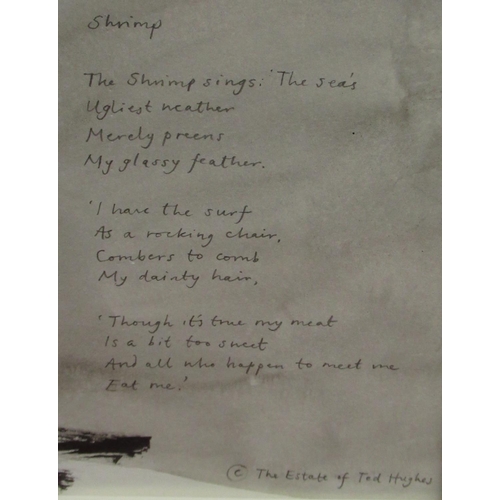 Shrimp
The Shrimp sings: 'The sea's
Ugliest weather
Merely preens
My glassy feather.
'I have the surf
As a rocking chair,
Combers to comb
My dainty hair,
'Though it's true my meat
Is a bit too sweet
And all who happen to meet me
Eat me.'
© The Estate of Ted Hughes